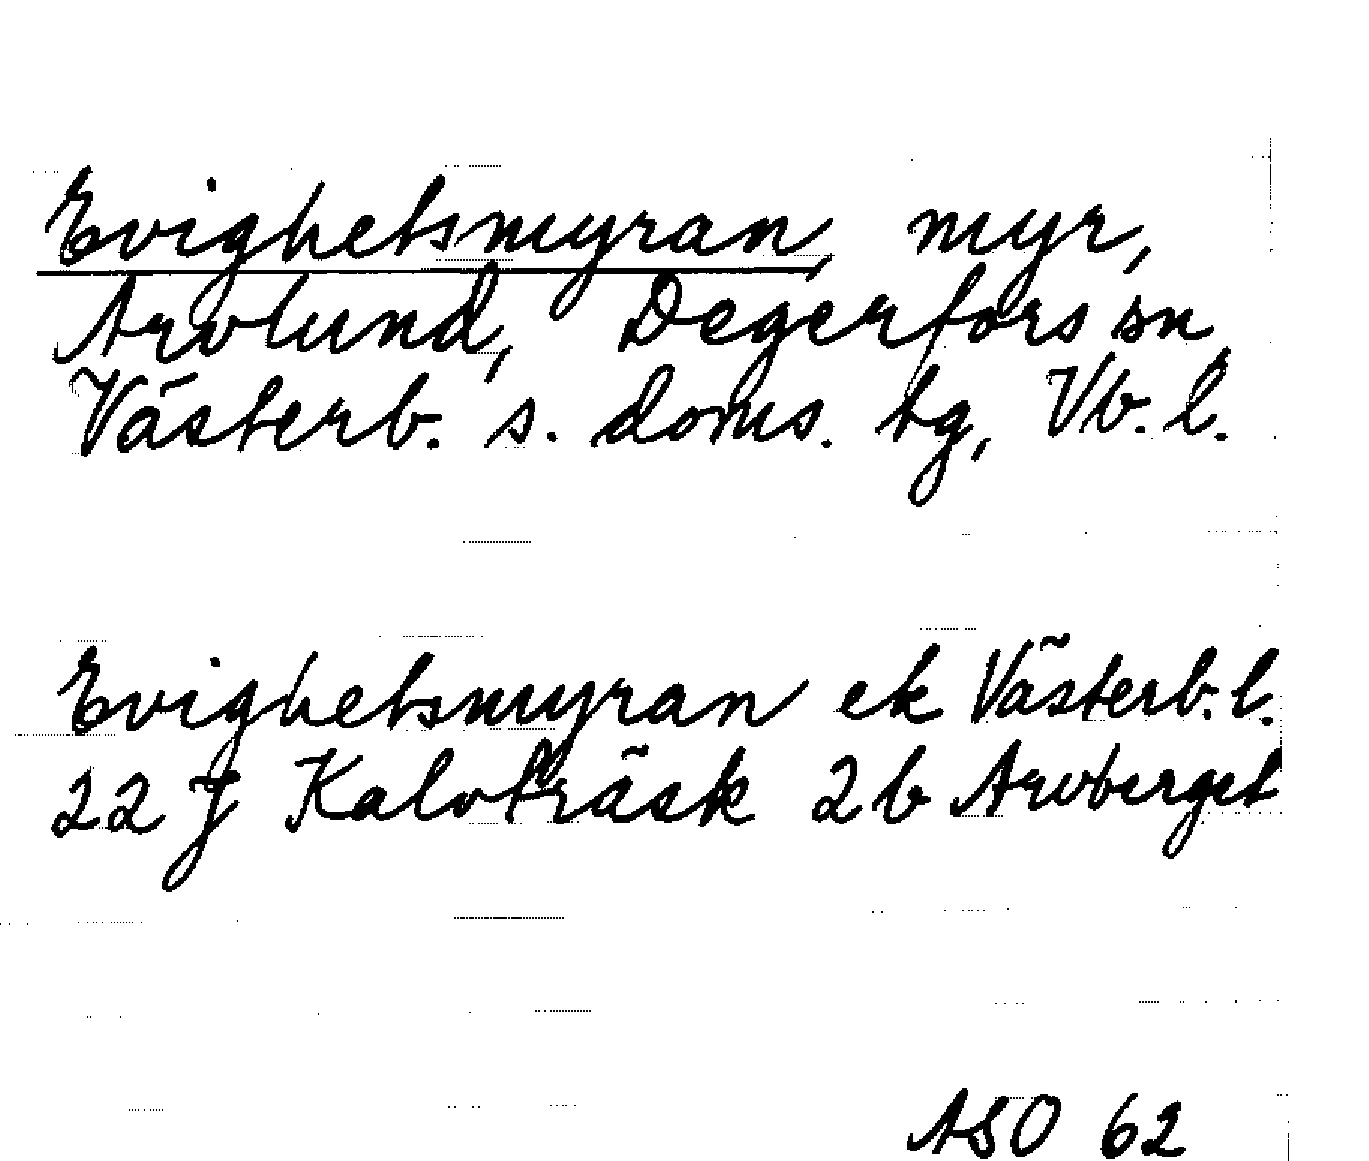 Evighetsmyran, myr,
Arvlund, Degerfors sn
Västerb. s. doms. tg, Vb. l.
Evighetsmyran ek Västerb. l.
22 J Kalvträsk 2b Arvberget
ASO 62